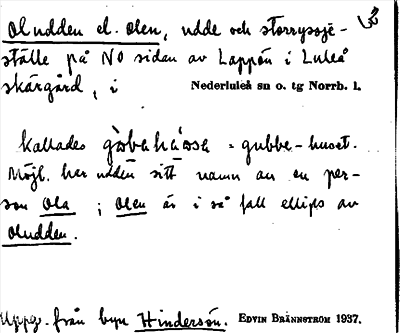 Oludden el. Olen, udde och storryssje-
ställe på NO sidan av Lappön i Luleå
skärgård, i Nederluleå sn o. tg Norrb. l.
Kallades = gubbe-huset.
Möjl. har udden sitt namn av en per-
son Ola ; Olen är i så fall ellips av
Oludden.
Uppg. från byn Hindersön. EDVIN BRÄNNSTRÖM 1937.